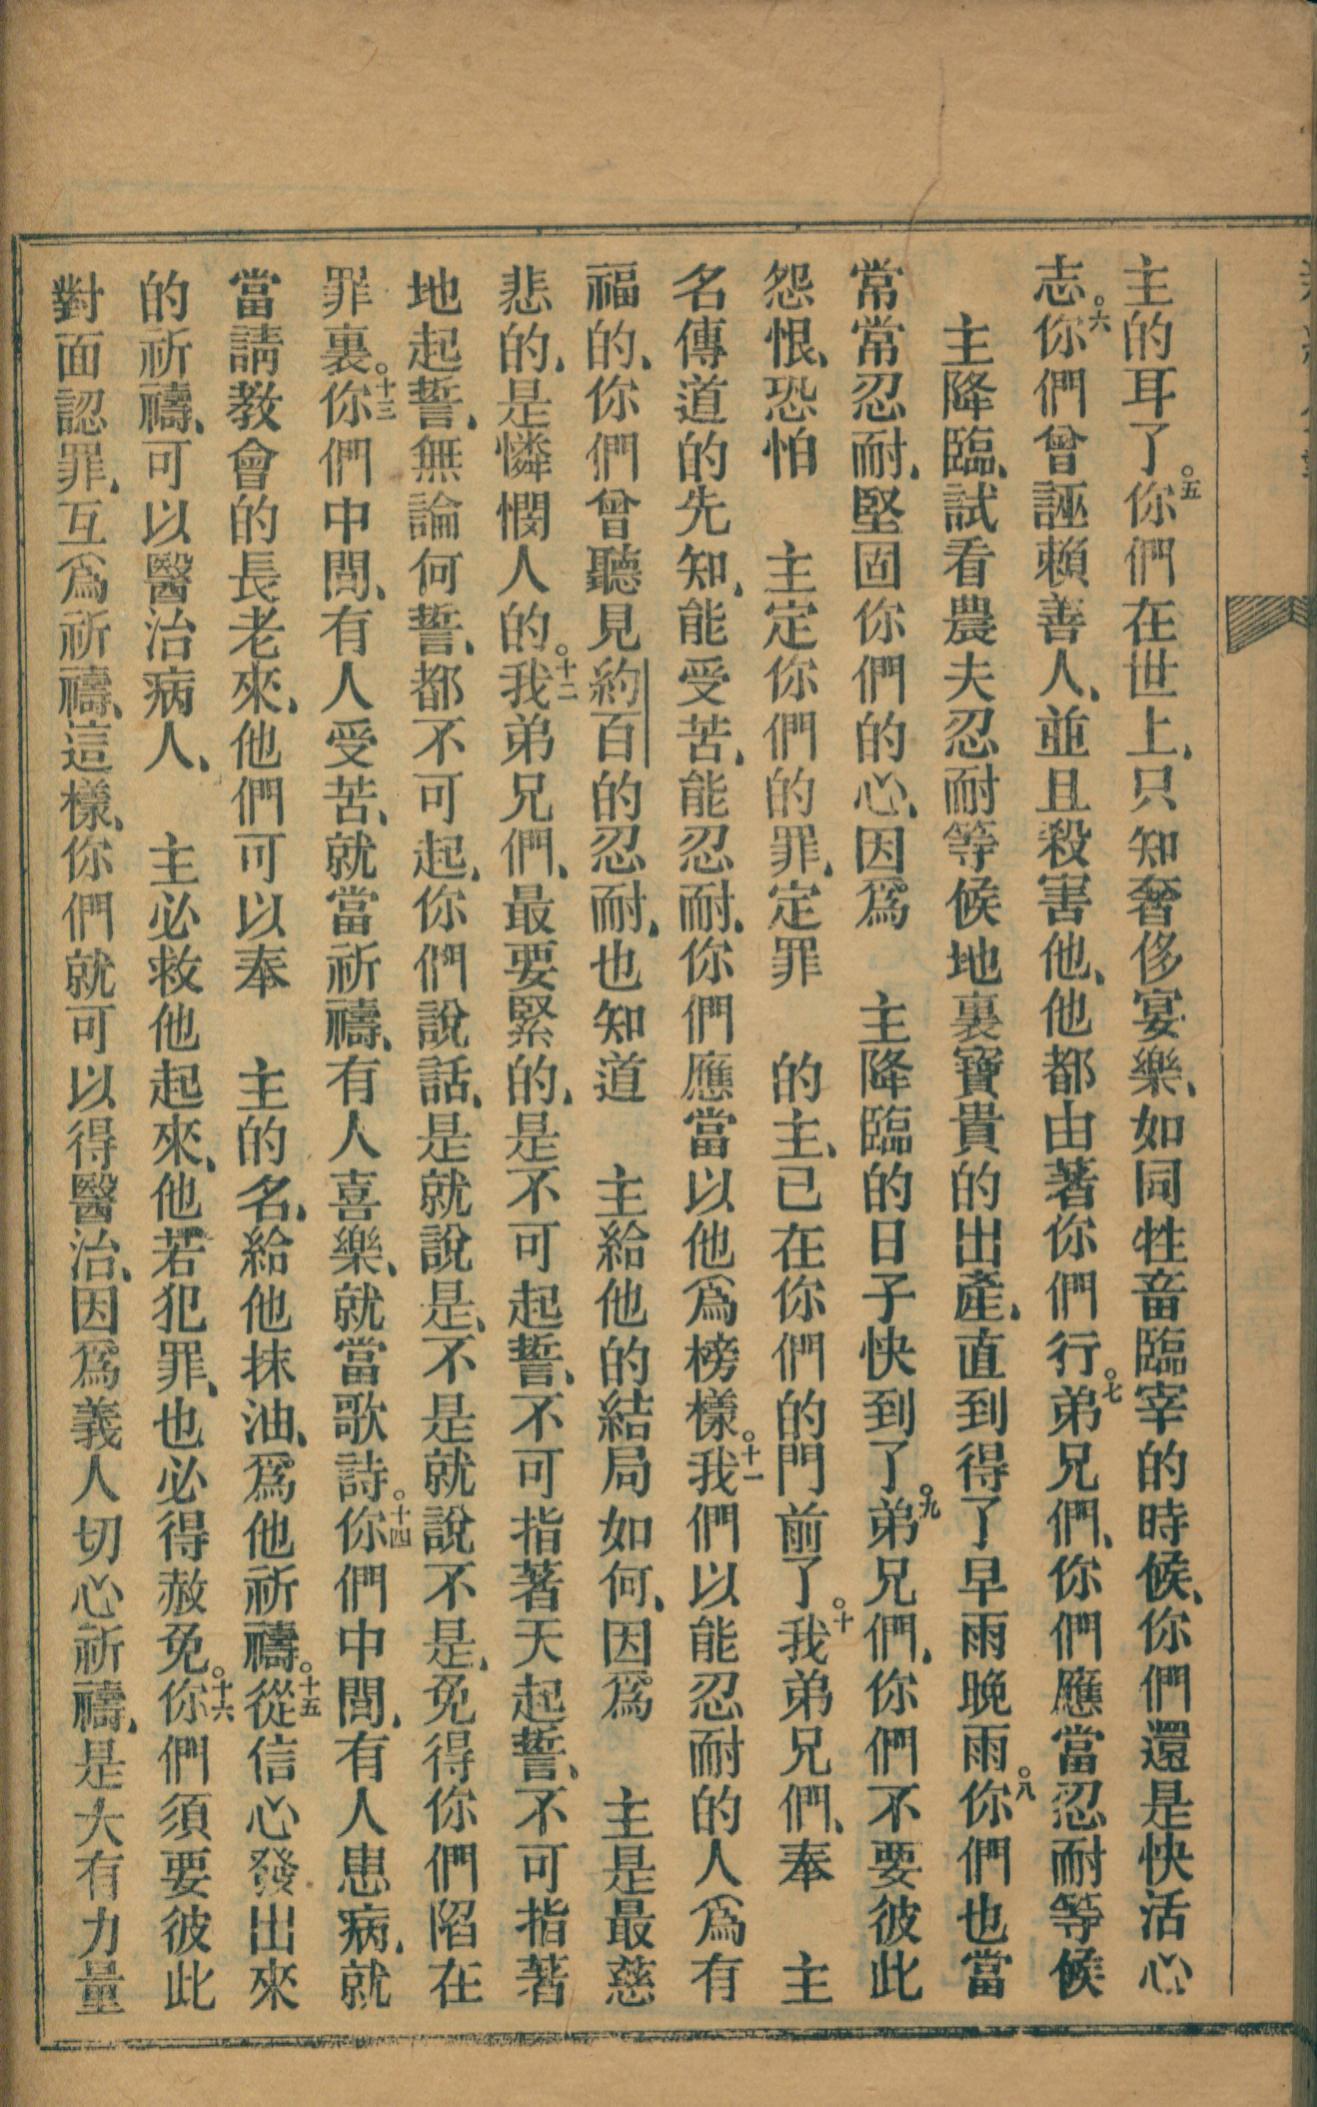 主的耳了。五你們在世上、只知奢侈宴樂、如同牲畜臨宰的時候、你們還是快活心
志。六你們曾誣賴善人、並且殺害他、他都由著你們行。七弟兄們、你們應當忍耐等候
主降臨、試看農夫忍耐等候地裏寶貴的出產、直到得了早雨晚雨。八你們也當
常常忍耐、堅固你們的心、因爲　主降臨的日子快到了。九弟兄們、你們不要彼此
怨恨、恐怕　主定你們的罪、定罪　的主、已在你們的門前了。十我弟兄們、奉　主
名傳道的先知、能受苦、能忍耐、你們應當以他爲榜樣。十一我們以能忍耐的人爲有
福的、你們曾聽見約百的忍耐、也知道　主給他的結局如何、因爲　主是最慈
悲的、是憐憫人的。十二我弟兄們、最要緊的、是不可起誓、不可指著天起誓、不可指著
地起誓、無論何誓、都不可起、你們說話、是就說是、不是就說不是、免得你們陷在
罪裏。十三你們中間、有人受苦、就當祈禱、有人喜樂、就當歌詩。十四你們中間、有人患病、就
當請教會的長老來、他們可以奉　主的名、給他抹油、爲他祈禱。十五從信心發出來
的祈禱、可以醫治病人、　主必救他起來、他若犯罪、也必得赦免。十六你們須要彼此
對面認罪、互爲祈禱、這樣、你們就可以得醫治、因爲義人切心祈禱、是大有力量